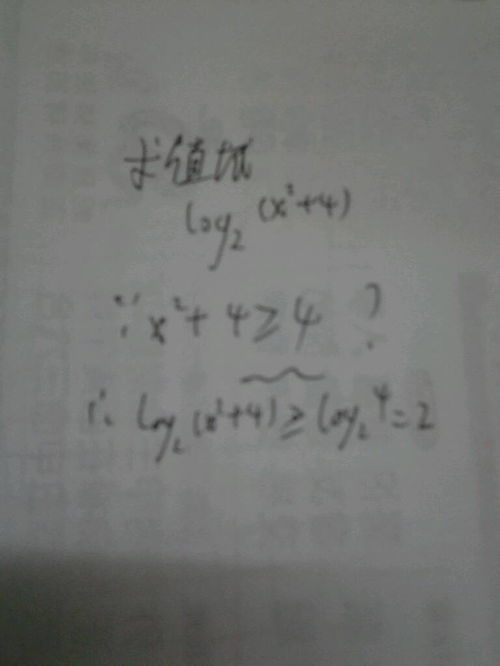 求值域
log₂(x²+4)
∵x²+4≥4 ?
∴log₂(x²+4)≥log₂4=2